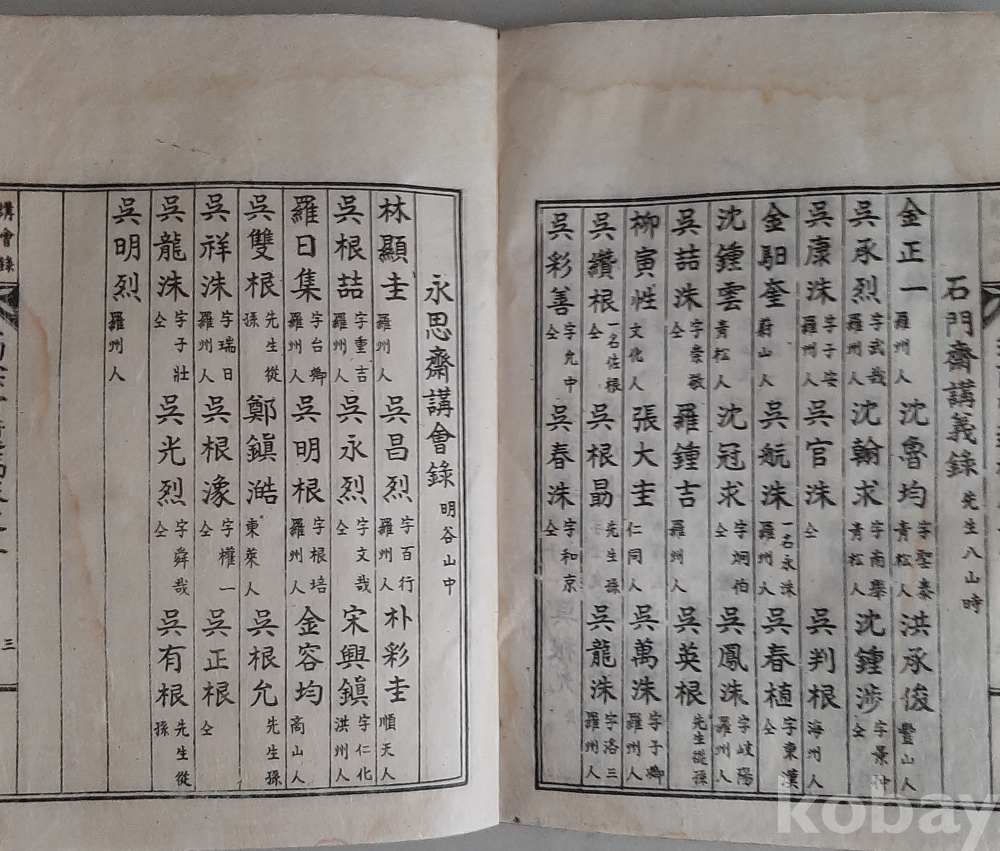 石門齋講義錄 先生入山時
金正一 羅州人 沈魯均 字聖泰 青松人 洪承俊 豐山人
吳承烈 字武哉 羅州人 沈翰求 字南擧 青松人 沈鍾涉 字景仲 仝
吳康洙 字子安 羅州人 吳官洙 仝 吳判根 海州人
金馹奎 蔚山人 吳航洙 一名永洙 羅州人 吳春植 字東漢 仝
沈鍾雲 青松人 沈冠求 字炯伯 仝 吳鳳洙 字岐陽 羅州人
吳喆洙 字崇敬 仝 羅鍾吉 羅州人 吳英根 先生從孫
柳寅性 文化人 張大圭 仁同人 吳萬洙 字子卿 羅州人
吳纘根 一名佐根 仝 吳根勗 先生孫 仝 吳龍洙 字洛三 羅州人
吳彩善 字允中 仝 吳春洙 字和京 仝
永思齋講會錄 明谷山中
林顯圭 羅州人 吳昌烈 字百行 羅州人 朴彩圭 順天人
吳根喆 字重吉 羅州人 吳永烈 字文哉 仝 宋興鎭 字仁化 洪州人
羅日集 字台卿 羅州人 吳明根 字根培 羅州人 金容均 高山人
吳雙根 先生從孫 鄭鎭澔 東萊人 吳根允 先生孫
吳祥洙 字瑞日 羅州人 吳根濠 字權一 仝 吳正根 仝
吳龍洙 字子壯 仝 吳光烈 字舜哉 仝 吳有根 先生從孫
吳明烈 羅州人
講會錄
三
kobay